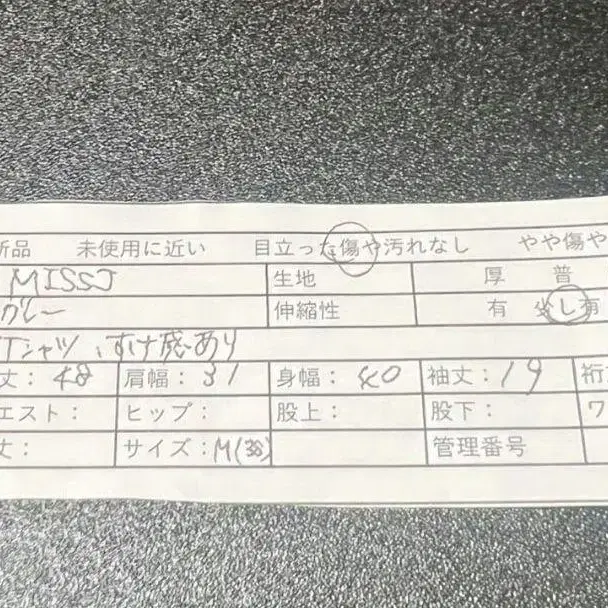 新品 未使用に近い 目立った傷や汚れなし やや傷や
MISSJ 生地 厚 普
グレー 伸縮性 有 少し有
Tシャツ、すけ感あり
丈: 48 肩幅: 31 身幅: 40 袖丈: 19 裄
エスト: ヒップ: 股上: 股下: ワ
丈: サイズ: M(38) 管理番号